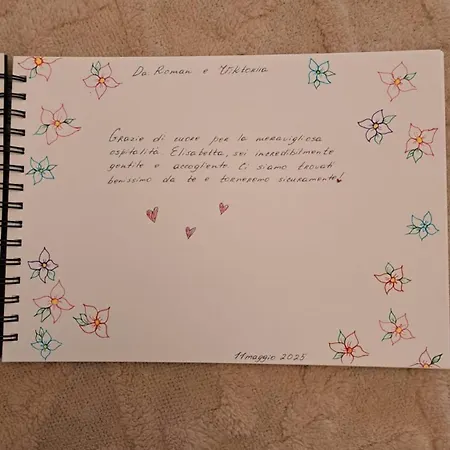 Da Roman e Viktoriia
Grazie di cuore per la meravigliosa
ospitalità. Elisabetta, sei incredibilmente
gentile e accogliente. Ci siamo trovati
benissimo da te e torneremo sicuramente!
11 maggio 2025